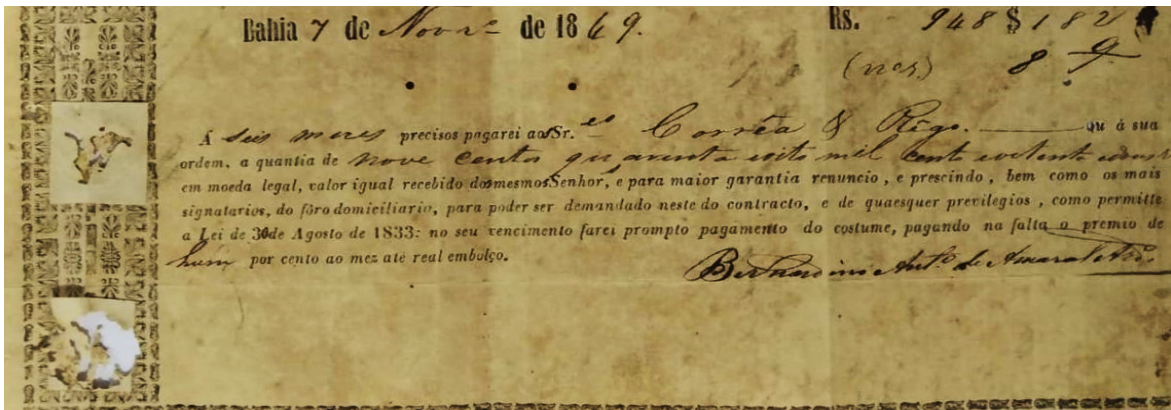 Bahia 7 de Novro de 1869. Rs. 948$182
(nos) 8
A seis mezes precisos pagarei aos Sr.es Corrêa & Rêgo. ou á sua
ordem, a quantia de nove centos quarenta eoito mil cento eoitenta edous
em moeda legal, valor igual recebido dos mesmos Senhor, e para maior garantia renuncio, e prescindo, bem como os mais
signatarios, do fôro domiciliario, para poder ser demandado neste do contracto, e de quaesquer previlegios, como permitte
a Lei de 30 de Agosto de 1833: no seu vencimento farei prompto pagamento do costume, pagando na falta o premio de
hum por cento ao mez até real embolço.
Bernardino Anto. de Amaral